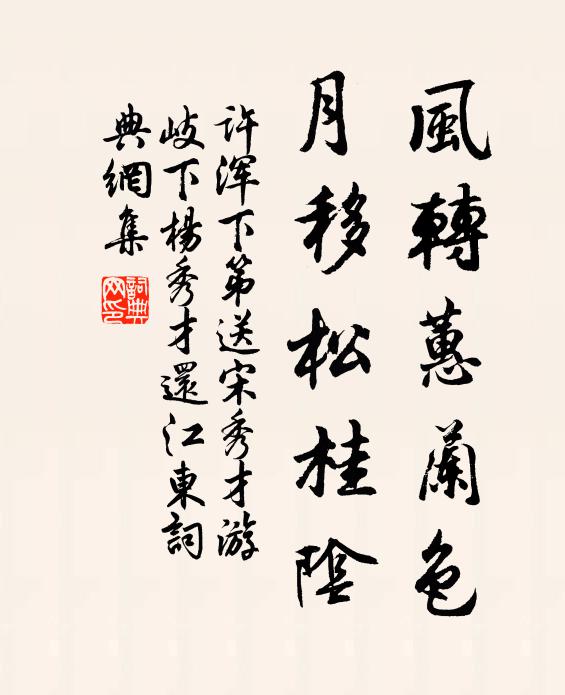 風轉蕙蘭色
月移松桂陰
许渾下第送宋秀才游
岐下楊秀才還江東詞
典網集
詞典网印